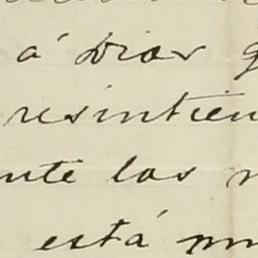 á Dios
resintien
nte los
está